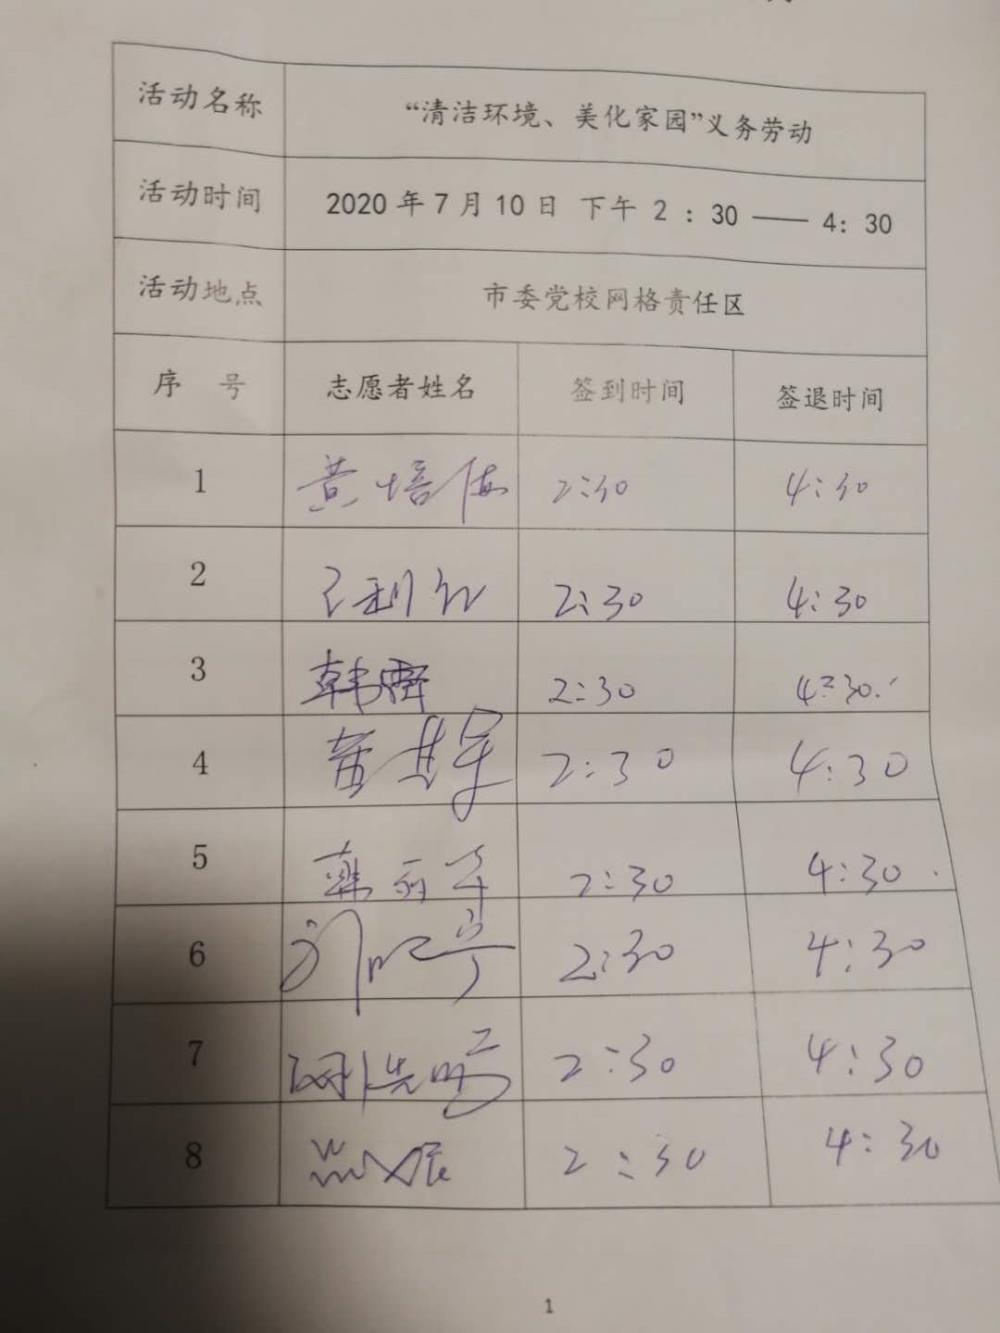 活动名称 “清洁环境、美化家园”义务劳动
活动时间 2020年7月10日 下午 2：30 —— 4：30
活动地点 市委党校网格责任区
序 号 志愿者姓名 签到时间 签退时间
1 黄培海 2:30 4:30
2 2:30 4:30
3 韩霁 2:30 4:30
4 2:30 4:30
5 2:30 4:30
6 2:30 4:30
7 2:30 4:30
8 2:30 4:30
1